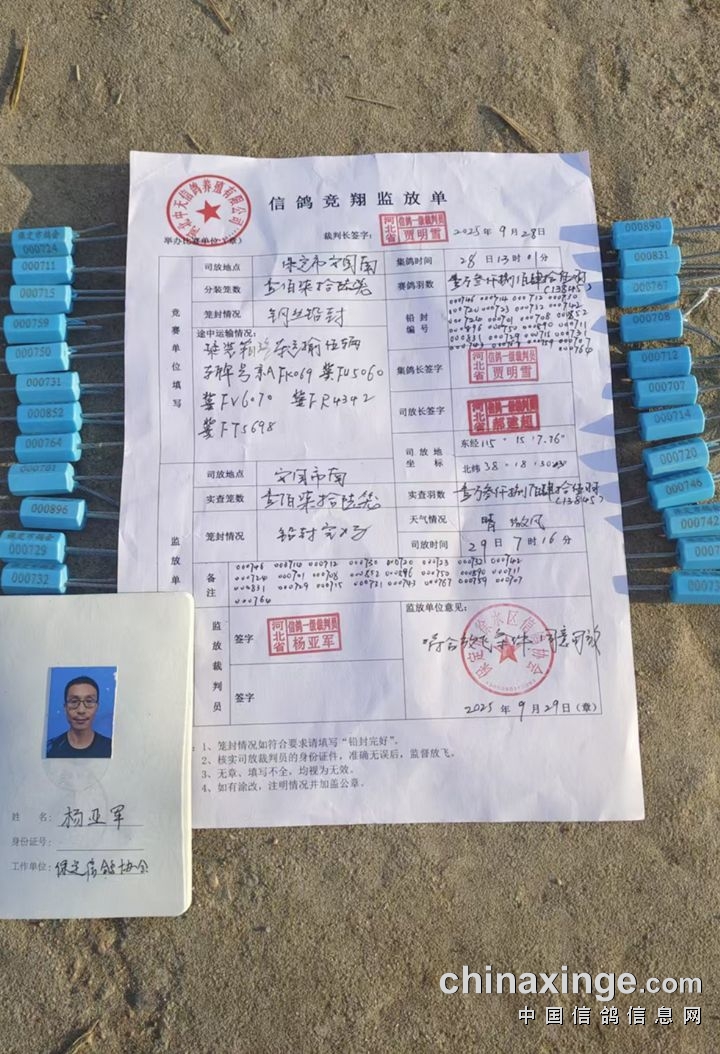 信鸽竞翔监放单
河北中天信鸽养殖有限公司
举办比赛单位（章）
裁判长签字：
河北省 信鸽一级裁判员 贾明雪
2025年9月28日
竞赛单位填写
司放地点 保定市安国南 集鸽时间 28日13时01分
分装笼数 壹佰柒拾陆笼 赛鸽羽数 (13845)
笼封情况 钢丝铅封 铅封编号
途中运输情况：
车牌号京AFK069 冀FU5060
冀FV6070 冀FR4342
冀FT5698
集鸽长签字 河北省 信鸽一级裁判员 贾明雪
司放长签字 河北省
司放地坐标 东经115°15′7.76″
北纬38°18′
监放单
司放地点 安国市南
实查笼数 壹佰柒拾陆笼 实查羽数 (13845)
笼封情况 铅封完好 天气情况 晴 微风
司放时间 29日7时16分
备注
000746 000714 000712 000750 000720 000723 000732 000742
000724 000701 000708 000852 000896 000750 000890 000711
000831 000729 000715 000731 000743 000767 000759 000707
000764
监放裁判员
签字 河北省 信鸽一级裁判员 杨亚军
签字
监放单位意见：
符合放飞条件 同意司放
2025年9月29日（章）
1、笼封情况如符合要求请填写“铅封完好”。
2、核实司放裁判员的身份证件，准确无误后，监督放飞。
3、无章、填写不全，均视为无效。
4、如有涂改，注明情况并加盖公章。
保定市鸽会
000724
000711
000715
000759
000750
000731
000852
000764
000701
000896
保定市鸽会
000729
000732
000890
000831
000767
000708
000712
000707
000714
000720
000746
000742
姓名：杨亚军
身份证号：
工作单位：保定信鸽协会
chinaxinge.com
中国信鸽信息网